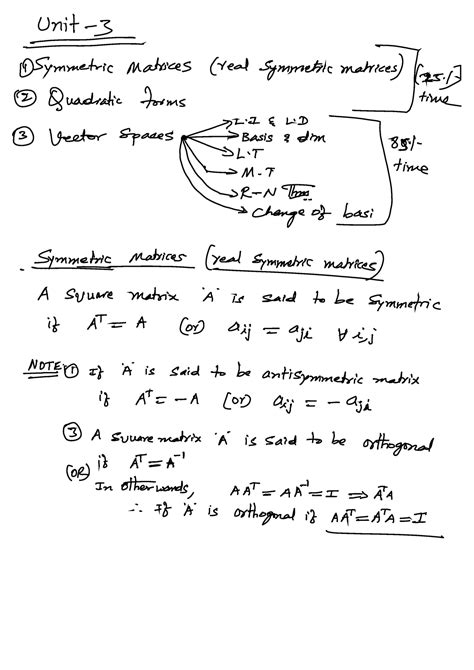 Unit-3
① Symmetric Matrices (real symmetric matrices)
② Quadratic forms
[25%] time
③ Vector Spaces
L.I & L.D
Basis & dim
L.T
M.T
R-N Thm
Change of basi
85% time
Symmetric Matrices (real symmetric matrices)
A square matrix 'A' is said to be symmetric
if Aᵀ = A (or) aij = aji ∀ i,j
NOTE: ① If 'A' is said to be antisymmetric matrix
if Aᵀ = -A (or) aij = -aji
③ A square matrix 'A' is said to be orthogonal
(OR) if Aᵀ = A⁻¹
In otherwords, AAᵀ = AA⁻¹ = I ⟹ AᵀA
∴ If 'A' is orthogonal if AAᵀ = AᵀA = I